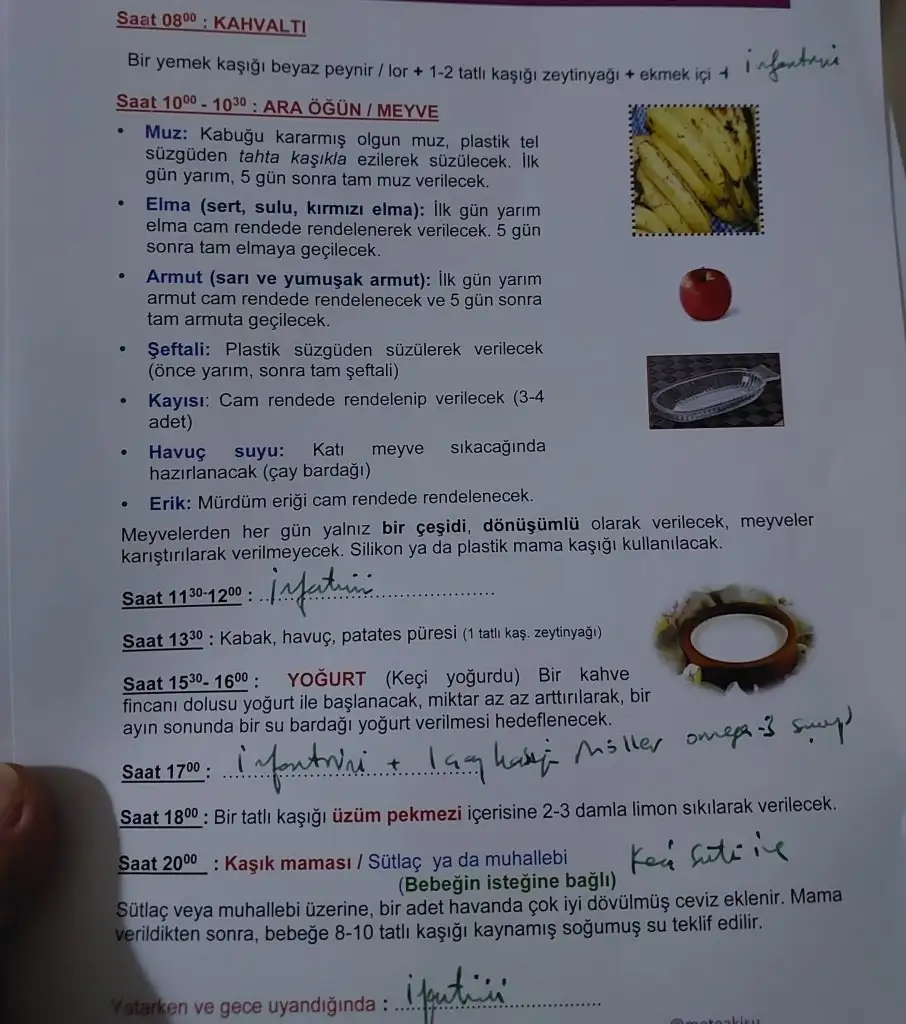 Saat 08⁰⁰ : KAHVALTI
Bir yemek kaşığı beyaz peynir / lor + 1-2 tatlı kaşığı zeytinyağı + ekmek içi + infantrini
Saat 10⁰⁰ - 10³⁰ : ARA ÖĞÜN / MEYVE
• Muz: Kabuğu kararmış olgun muz, plastik tel
süzgüden tahta kaşıkla ezilerek süzülecek. İlk
gün yarım, 5 gün sonra tam muz verilecek.
• Elma (sert, sulu, kırmızı elma): İlk gün yarım
elma cam rendede rendelenerek verilecek. 5 gün
sonra tam elmaya geçilecek.
• Armut (sarı ve yumuşak armut): İlk gün yarım
armut cam rendede rendelenecek ve 5 gün sonra
tam armuta geçilecek.
• Şeftali: Plastik süzgüden süzülerek verilecek
(önce yarım, sonra tam şeftali)
• Kayısı: Cam rendede rendelenip verilecek (3-4
adet)
• Havuç suyu: Katı meyve sıkacağında
hazırlanacak (çay bardağı)
• Erik: Mürdüm eriği cam rendede rendelenecek.
Meyvelerden her gün yalnız bir çeşidi, dönüşümlü olarak verilecek, meyveler
karıştırılarak verilmeyecek. Silikon ya da plastik mama kaşığı kullanılacak.
Saat 11³⁰-12⁰⁰ : infatrini
Saat 13³⁰ : Kabak, havuç, patates püresi (1 tatlı kaş. zeytinyağı)
Saat 15³⁰- 16⁰⁰ : YOĞURT (Keçi yoğurdu) Bir kahve
fincanı dolusu yoğurt ile başlanacak, miktar az az arttırılarak, bir
ayın sonunda bir su bardağı yoğurt verilmesi hedeflenecek.
Saat 17⁰⁰ : infantrini + 1 çay kaşığı Möller omega-3 şurup
Saat 18⁰⁰ : Bir tatlı kaşığı üzüm pekmezi içerisine 2-3 damla limon sıkılarak verilecek.
Saat 20⁰⁰ : Kaşık maması / Sütlaç ya da muhallebi Keçi sütü ile
(Bebeğin isteğine bağlı)
Sütlaç veya muhallebi üzerine, bir adet havanda çok iyi dövülmüş ceviz eklenir. Mama
verildikten sonra, bebeğe 8-10 tatlı kaşığı kaynamış soğumuş su teklif edilir.
Yatarken ve gece uyandığında : infatrini